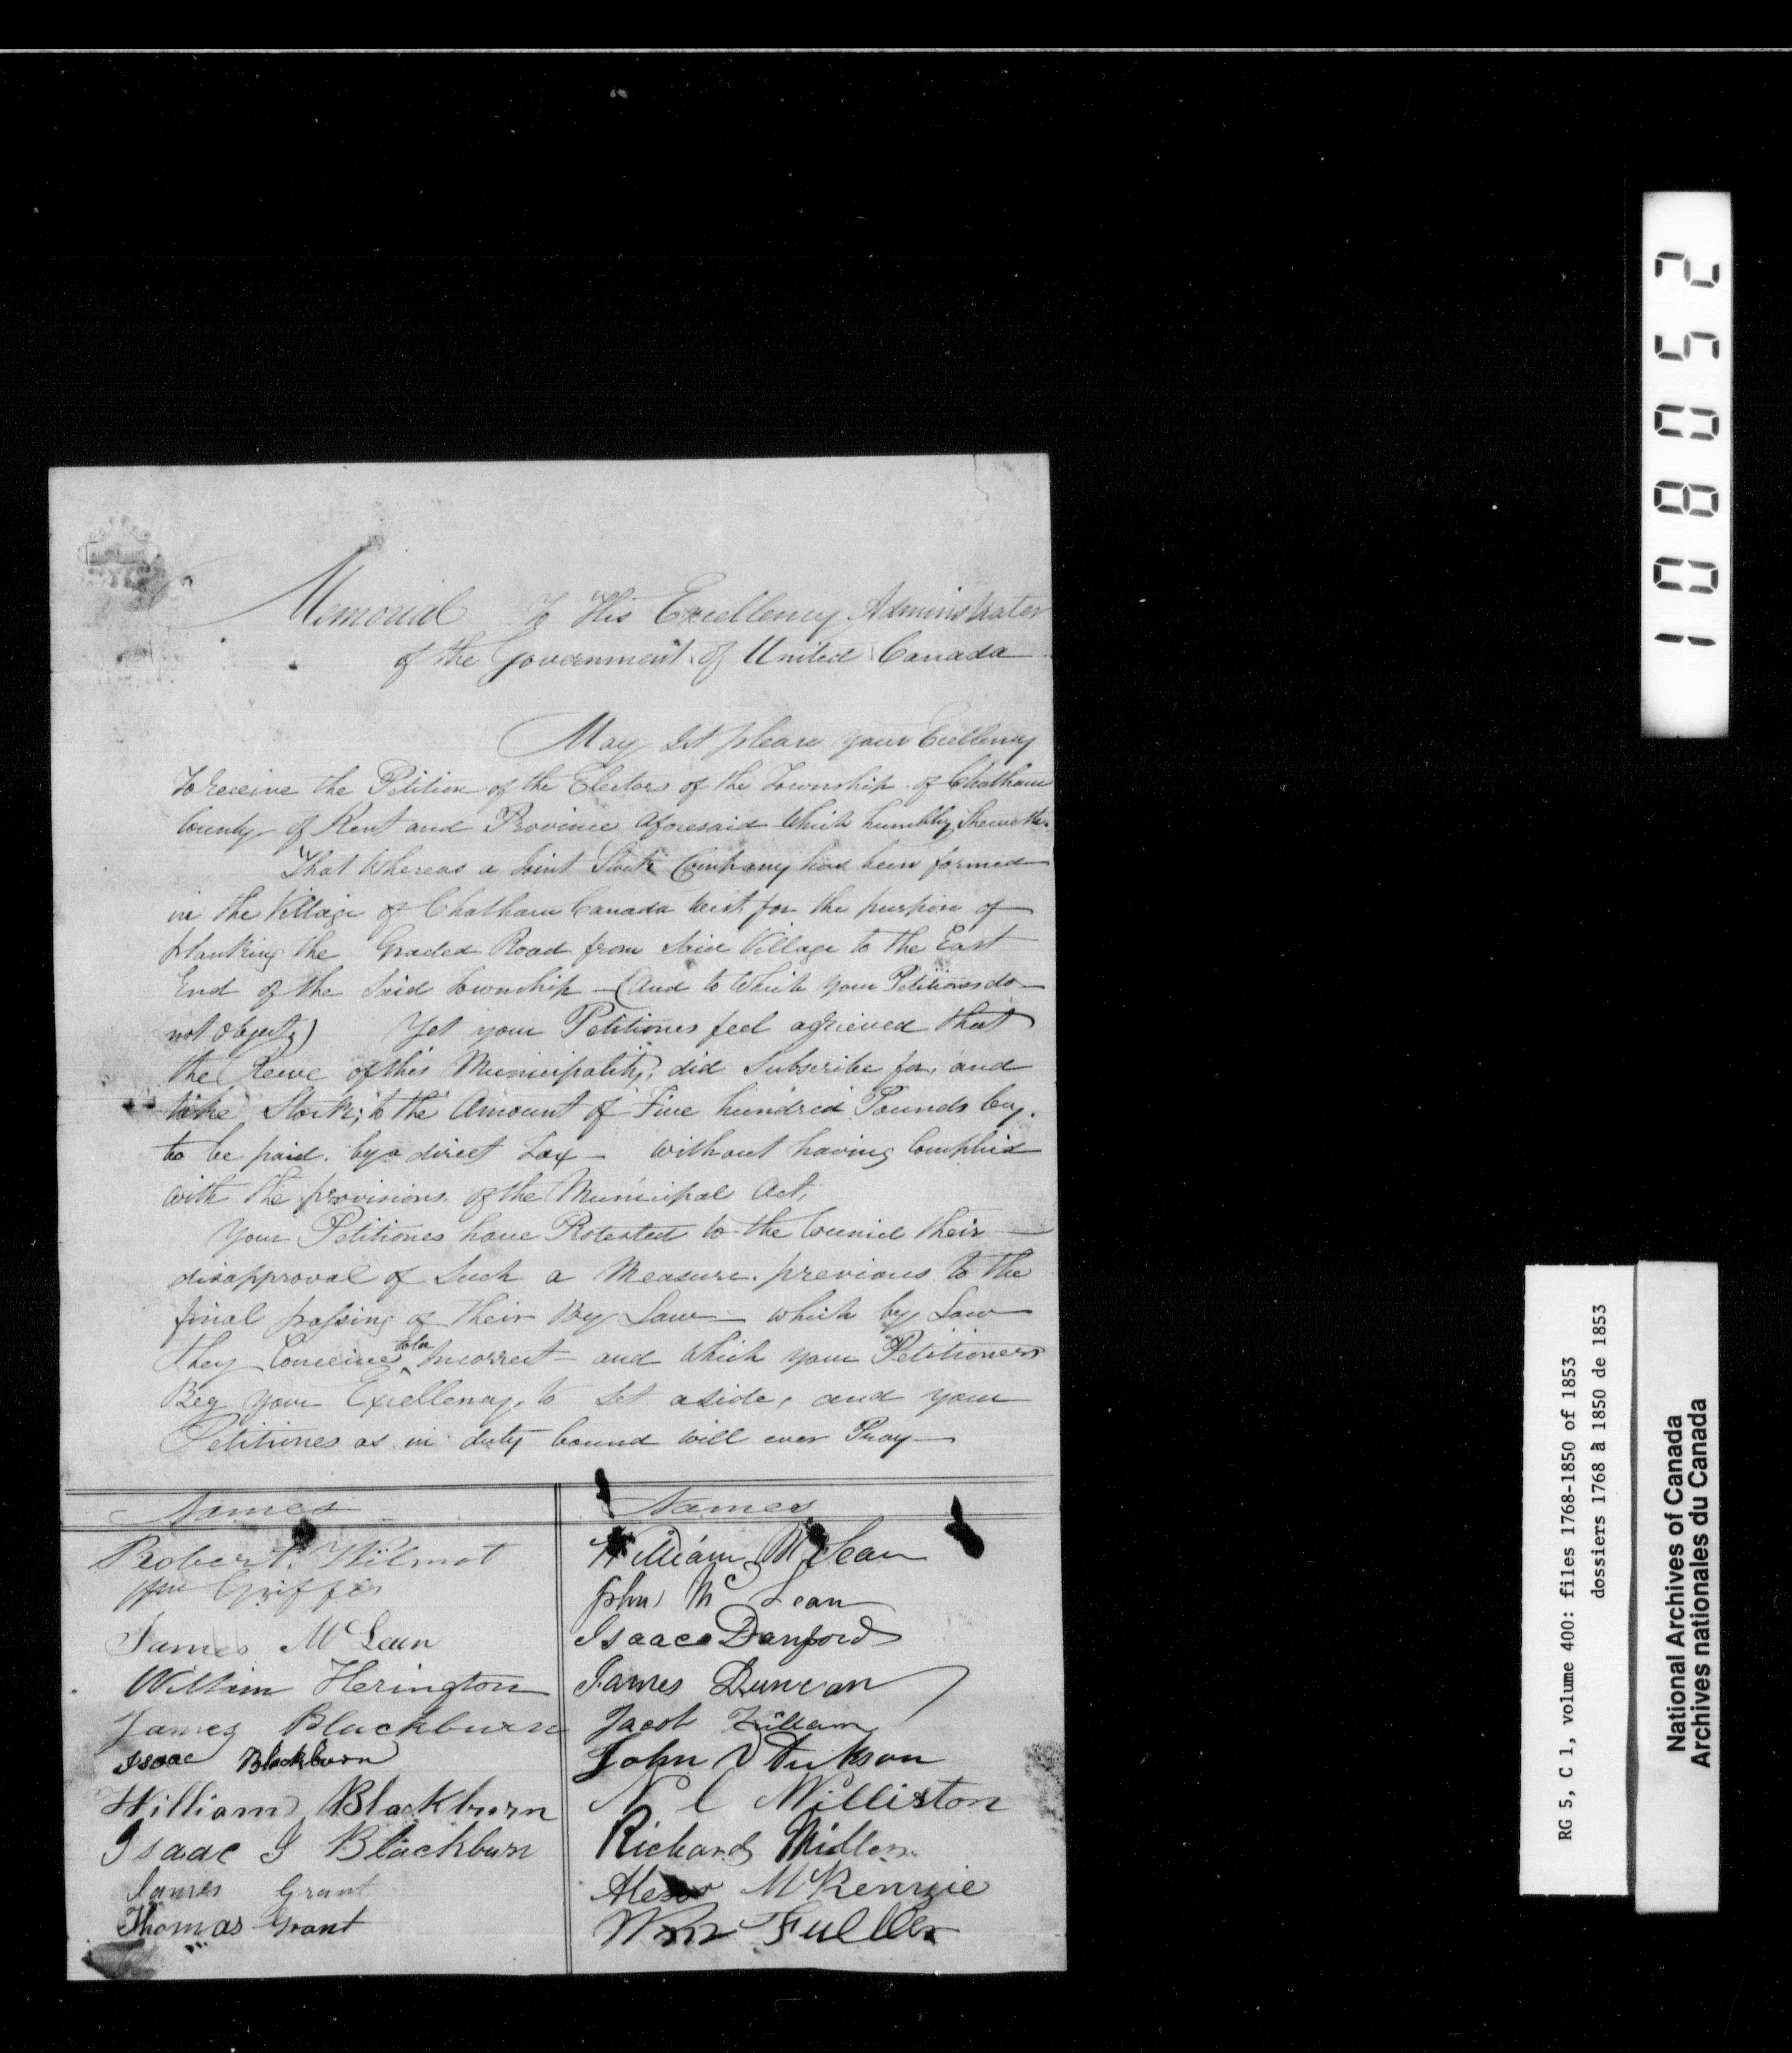 Memorial To His Excellency Administrater
of the Government of United Canada
May it please your Excellency
To receive the Petition of the Electors of the Township of Chatham
County of Kent and Province Aforesaid Which humbly Sheweth.
That Whereas a Joint Stock Company has been formed
in the Village of Chatham Canada West for the purpose of
planking the Graded Road from Said Village to the East
End of the Said Township — (And to Which your Petitiones do
not Object,) Yet your Petitiones feel agrieved that
the Reeve of this Municipality, did Subscribe for, and
take Stock; to the Amount of Five hundred Pounds Cuy.
to be paid. by a direct Tax — without having Complied
with the provisions of the Municipal Act,
Your Petitiones have Protested to the Councid their —
disapproval of Such a Measure. previous to the
final passing of their By Law — which by Law
they Conceive to be Incorrect — and Which your Petitioners
Beg your Excellency, to Set aside, and your
Petitiones as in duty bound will ever Pray —
Names
Names
Robert Wilmot
William McLean
Wm Griffis
John McLean
James McLean
Isaac Danford
William Herington
James Duncan
James Blackburn
Jacob
Isaac Blackburn
John
William Blackburn
N C Williston
Isaac J Blackburn
Richard Miller
James Grant
Alexr McKenzie
Thomas Grant
Wm Fuller
108052
RG 5, C 1, volume 400: files 1768-1850 of 1853
dossiers 1768 à 1850 de 1853
National Archives of Canada
Archives nationales du Canada